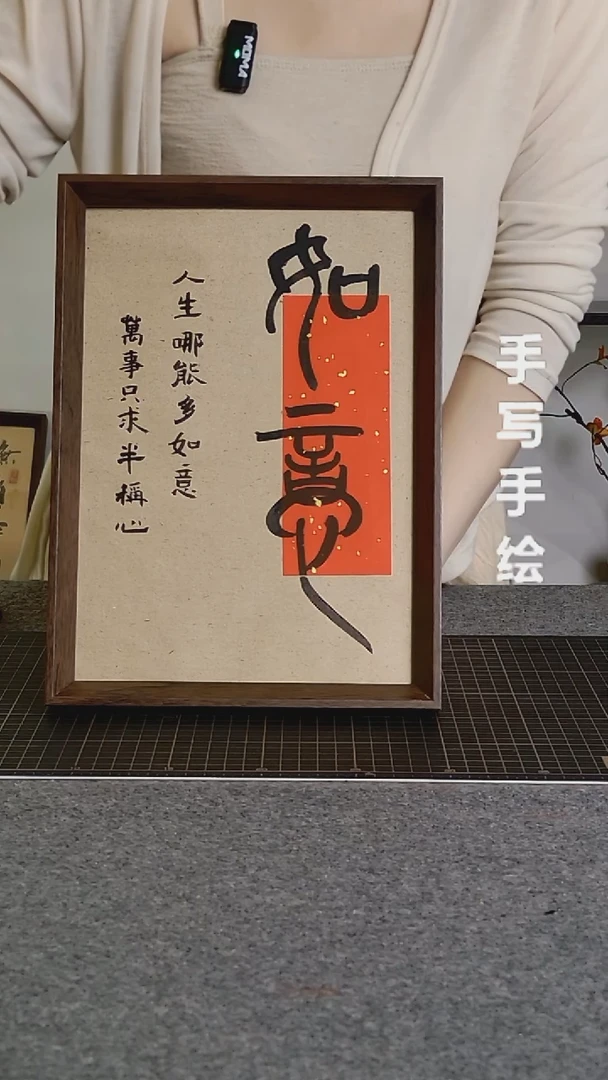 如意
人生哪能多如意
萬事只求半稱心
手写手绘
MOMA